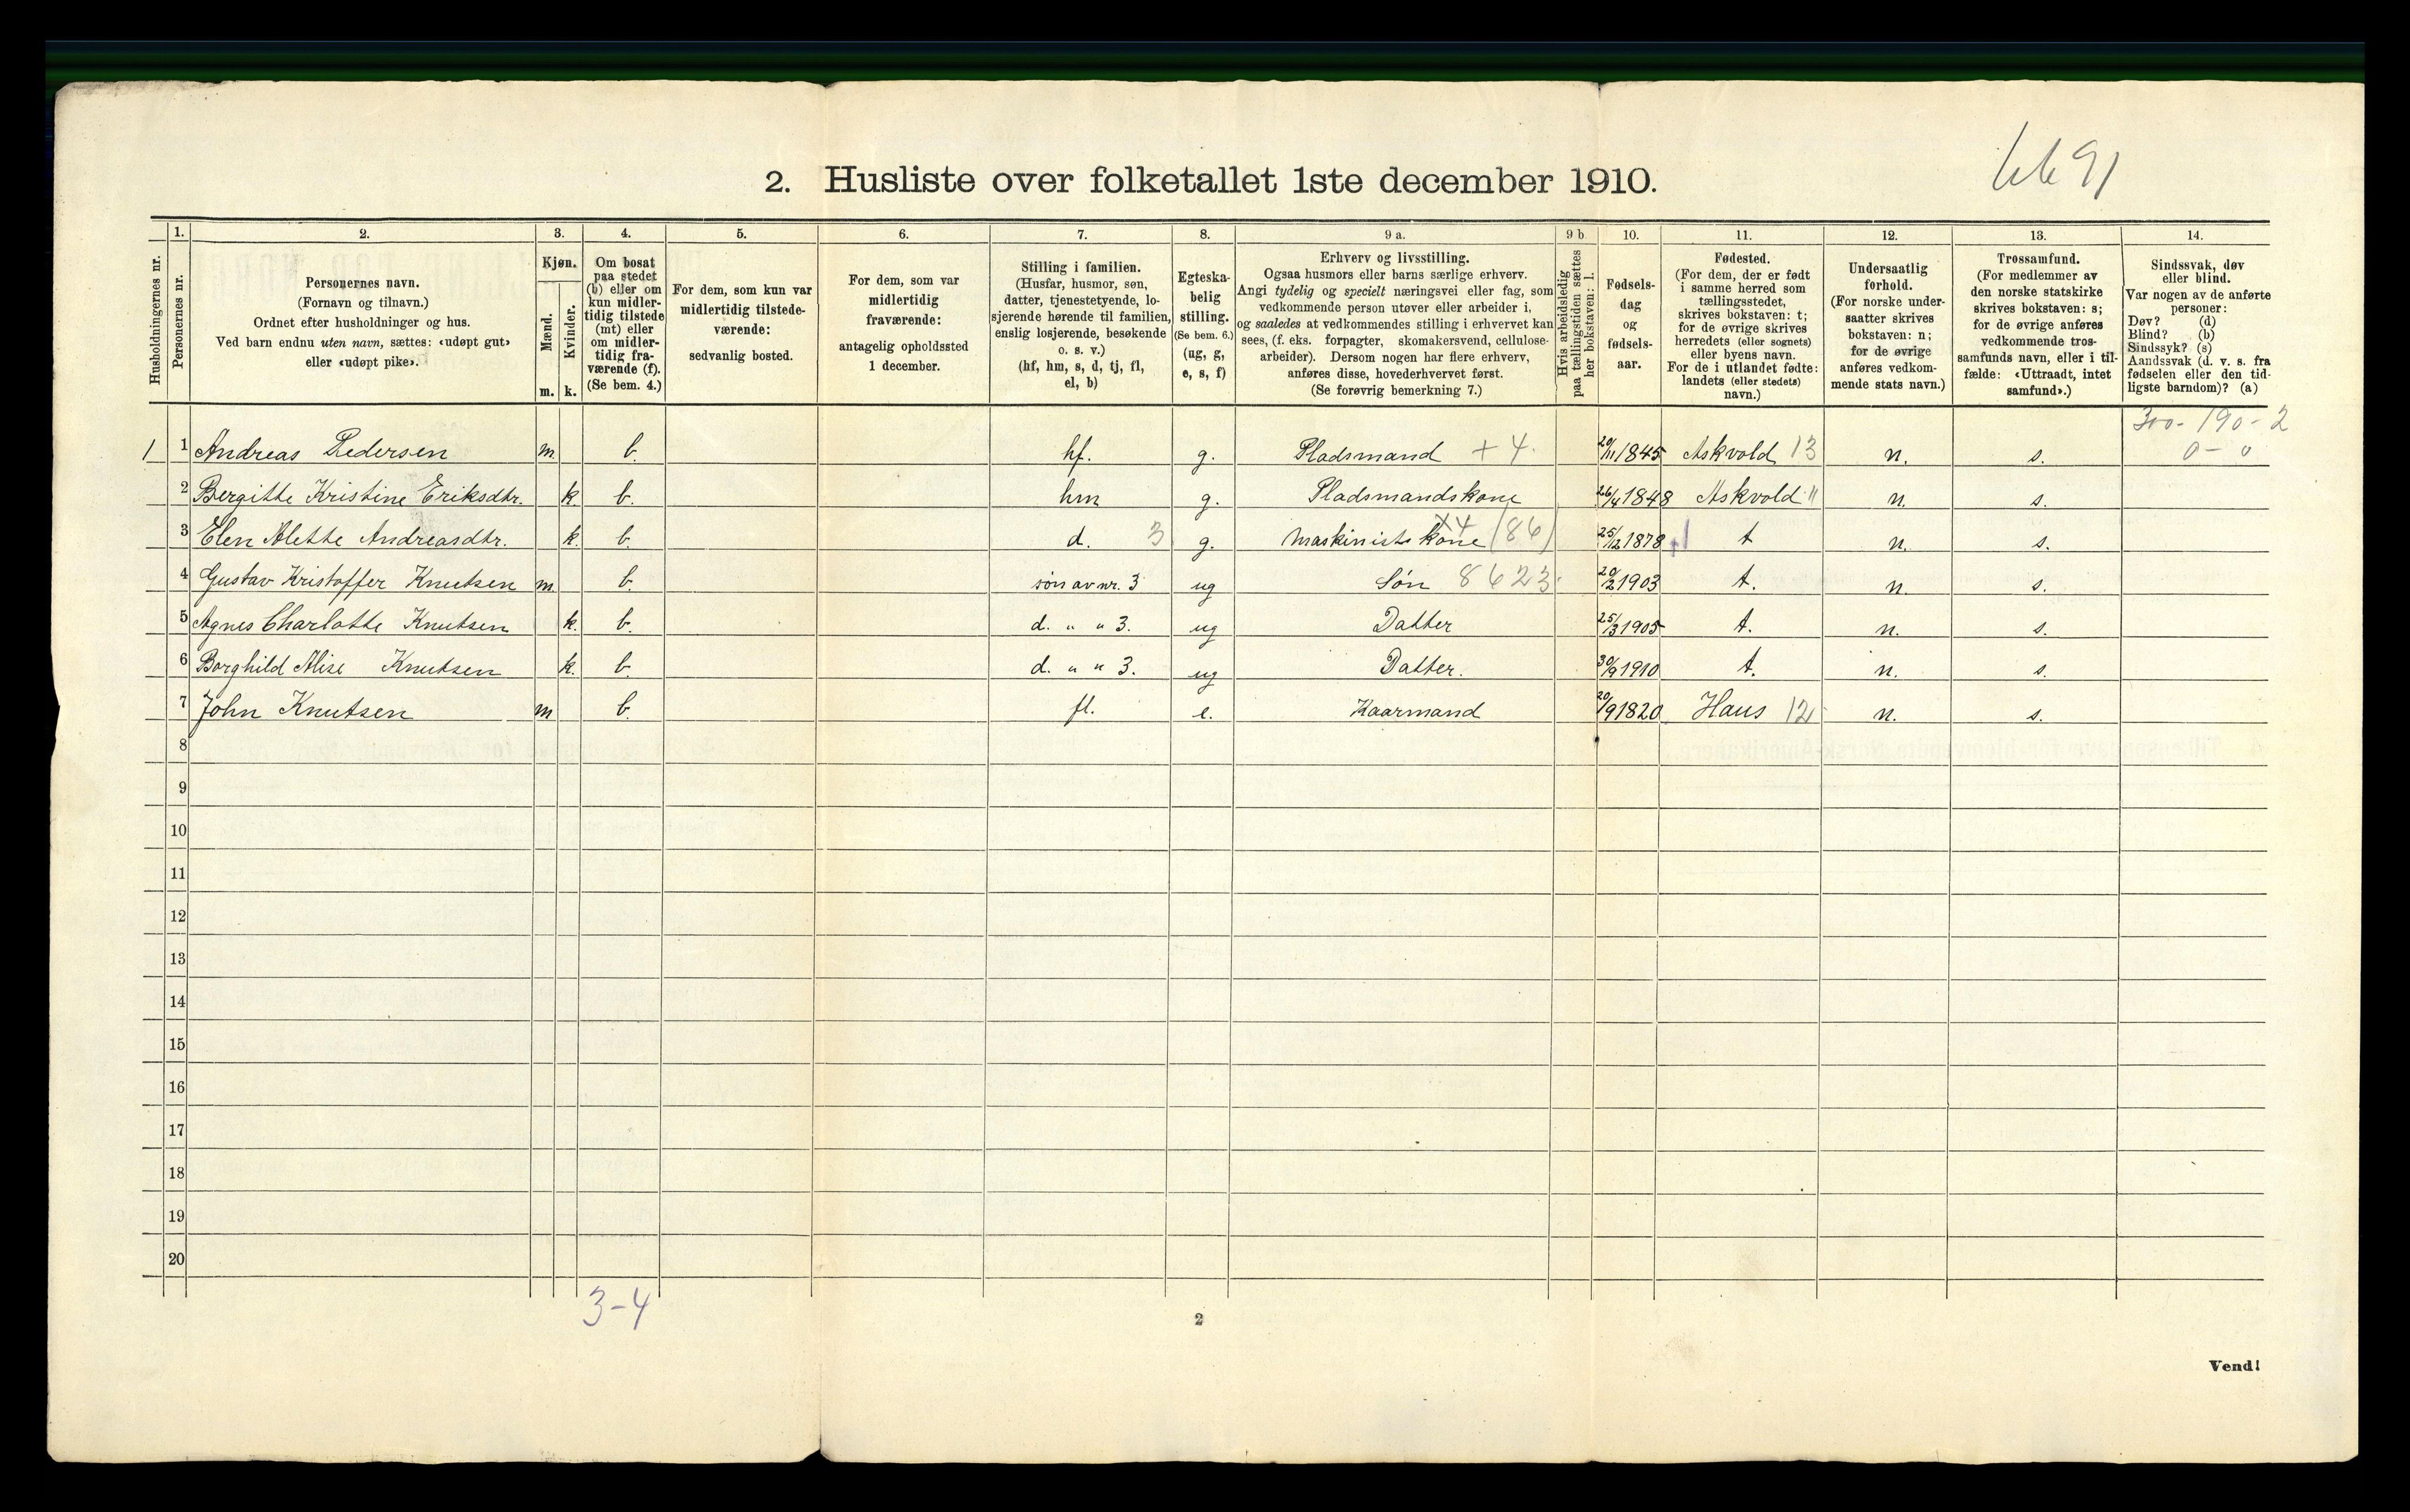 6691
2. Husliste over folketallet 1ste december 1910.
Husholdningernes nr.
1.
Personernes nr.
2.
Personernes navn.
(Fornavn og tilnavn.)
Ordnet efter husholdninger og hus.
Ved barn endnu uten navn, sættes: «udøpt gut»
eller «udøpt pike».
3.
Kjøn.
Mænd.
Kvinder.
m. k.
4.
Om bosat
paa stedet
(b) eller om
kun midler-
tidig tilstede
(mt) eller
om midler-
tidig fra-
værende (f).
(Se bem. 4.)
5.
For dem, som kun var
midlertidig tilstede-
værende:
sedvanlig bosted.
6.
For dem, som var
midlertidig
fraværende:
antagelig opholdssted
1 december.
7.
Stilling i familien.
(Husfar, husmor, søn,
datter, tjenestetyende, lo-
sjerende hørende til familien,
enslig losjerende, besøkende
o. s. v.)
(hf, hm, s, d, tj, fl,
el, b)
8.
Egteska-
belig
stilling.
(Se bem. 6.)
(ug, g,
e, s, f)
9 a.
Erhverv og livsstilling.
Ogsaa husmors eller barns særlige erhverv.
Angi tydelig og specielt næringsvei eller fag, som
vedkommende person utøver eller arbeider i,
og saaledes at vedkommendes stilling i erhvervet kan
sees, (f. eks. forpagter, skomakersvend, cellulose-
arbeider). Dersom nogen har flere erhverv,
anføres disse, hovederhvervet først.
(Se forøvrig bemerkning 7.)
9 b
Hvis arbeidsledig
paa tællingstiden sættes
her bokstaven: l.
10.
Fødsels-
dag
og
fødsels-
aar.
11.
Fødested.
(For dem, der er født
i samme herred som
tællingsstedet,
skrives bokstaven: t;
for de øvrige skrives
herredets (eller sognets)
eller byens navn.
For de i utlandet fødte:
landets (eller stedets)
navn.)
12.
Undersaatlig
forhold.
(For norske under-
saatter skrives
bokstaven: n;
for de øvrige
anføres vedkom-
mende stats navn.)
13.
Trossamfund.
(For medlemmer av
den norske statskirke
skrives bokstaven: s;
for de øvrige anføres
vedkommende tros-
samfunds navn, eller i til-
fælde: «Uttraadt, intet
samfund».)
14.
Sindssvak, døv
eller blind.
Var nogen av de anførte
personer:
Døv? (d)
Blind? (b)
Sindssyk? (s)
Aandssvak (d. v. s. fra
fødselen eller den tid-
ligste barndom)? (a)
300-190-2
0-0
1 1 Andreas Pedersen m b. hf. g. Pladsmand +4 20/11 1845 Askvold 13 n. s.
2 Bergitte Kristine Eriksdtr. k b. hm g. Pladsmandskone 26/4 1848 Askvold " n. s.
3 Elen Alette Andreasdtr. k. b. d. 3 g. Maskinistskone x4 (86) 25/12 1878 t n. s.
4 Gustav Kristoffer Knutsen m b. søn av nr. 3 ug Søn 8623 20/2 1903 t. n. s.
5 Agnes Charlotte Knutsen k. b. d. " " 3. ug Datter 25/3 1905 t. n. s.
6 Borghild Alise Knutsen k. b. d. " " 3. ug Datter. 30/9 1910 t. n. s.
7 John Knutsen m b. fl. e. Kaarmand 20/9 1820 Haus 12 n. s.
8
9
10
11
12
13
14
15
16
17
18
19
20
3-4
2
Vend!